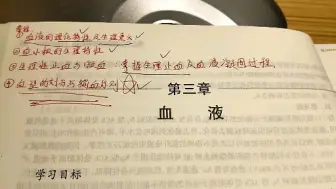 掌握
①血液的理化特性及生理意义✓
②血小板的生理特性✓
③生理性止血与凝血:掌握生理止血及血液凝固过程
④血型的划分与输血原则☆✓
第三章
血 液
学习目标